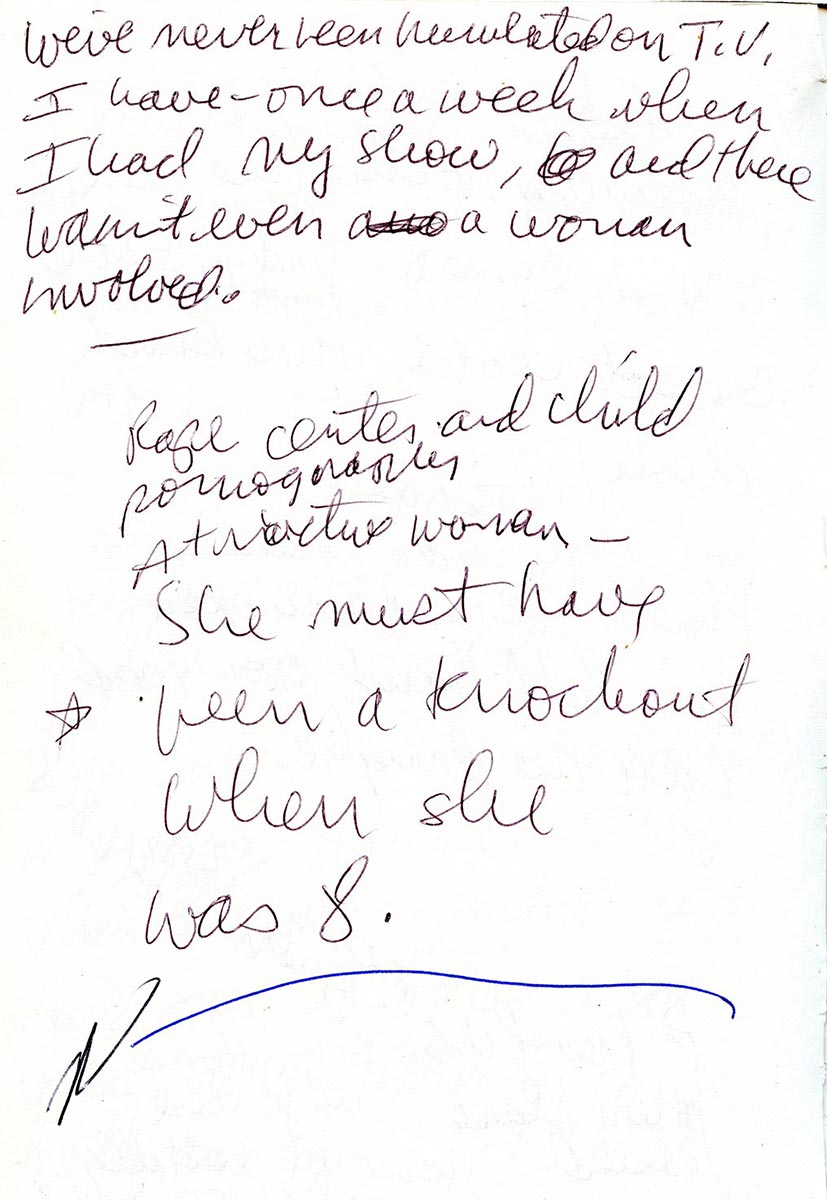 We've never been humiliated on T.V.
I have – once a week when
I had my show, and there
wasn't even a woman
involved.
Rape center and child
pornography
Attractive woman –
She must have
☆ been a knockout
when she
was 8.